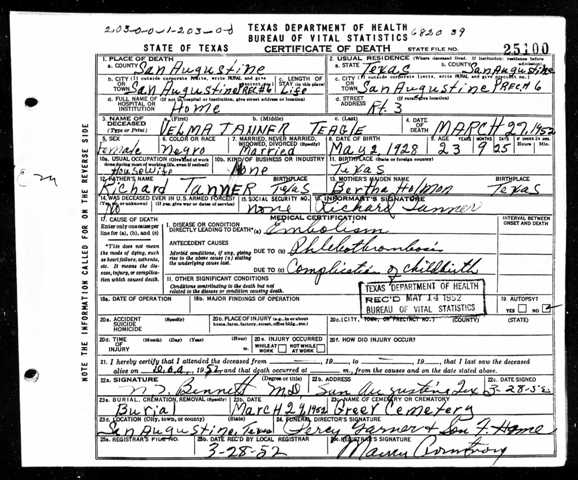 203-0-0-1-203-0-0
TEXAS DEPARTMENT OF HEALTH
BUREAU OF VITAL STATISTICS
6820 39
STATE OF TEXAS CERTIFICATE OF DEATH STATE FILE NO. 25100
1. PLACE OF DEATH
a. COUNTY San Augustine
2. USUAL RESIDENCE (Where deceased lived. If institution: residence before admission)
a. STATE Texas b. COUNTY San Augustine
b. CITY (If outside corporate limits, write RURAL and give
OR TOWN San Augustine PREC#6
c. LENGTH OF STAY (in this place) Life
c. CITY (If outside corporate limits, write RURAL and give precinct no.)
OR TOWN San Augustine PREC# 6
d. FULL NAME OF (If not in hospital or institution, give street address or location)
HOSPITAL OR INSTITUTION Home
d. STREET ADDRESS (If rural, give location) Rt. 3
3. NAME OF DECEASED (Type or Print)
a. (First) b. (Middle) c. (Last)
VELMA TANNER TEAGLE
4. DATE OF DEATH MARCH 27, 1952
5. SEX Female
6. COLOR OR RACE Negro
7. MARRIED, NEVER MARRIED, WIDOWED, DIVORCED (Specify) Married
8. DATE OF BIRTH May 2 1928
9. AGE YEARS MONTHS DAYS 23 9 25
10a. USUAL OCCUPATION (Give kind of work done during most of working life, even if retired) Housewife
10b. KIND OF BUSINESS OR INDUSTRY None
11. BIRTHPLACE (State or foreign country) Texas
12. FATHER'S NAME BIRTHPLACE
Richard Tanner Texas
13. MOTHER'S MAIDEN NAME BIRTHPLACE
Bertha Holmon Texas
14. WAS DECEASED EVER IN U.S. ARMED FORCES?
No
15. SOCIAL SECURITY NO. none
16. INFORMANT'S SIGNATURE Richard Tanner
17. CAUSE OF DEATH
Enter only one cause per line for (a), (b), and (c)
*This does not mean the mode of dying, such as heart failure, asthenia, etc. It means the disease, injury, or complication which caused death.
MEDICAL CERTIFICATION
INTERVAL BETWEEN ONSET AND DEATH
I. DISEASE OR CONDITION DIRECTLY LEADING TO DEATH* (a) Embolism
ANTECEDENT CAUSES
Morbid conditions, if any, giving rise to the above cause (a) stating the underlying cause last.
DUE TO (b) Phlebothrombosis
DUE TO (c) Complication of childbirth
II. OTHER SIGNIFICANT CONDITIONS
Conditions contributing to the death but not related to the disease or condition causing death.
TEXAS DEPARTMENT OF HEALTH
REC'D MAY 14 1952
BUREAU OF VITAL STATISTICS
18a. DATE OF OPERATION
18b. MAJOR FINDINGS OF OPERATION
19. AUTOPSY
YES NO
20a. ACCIDENT SUICIDE HOMICIDE (Specify)
20b. PLACE OF INJURY (e.g., in or about home, farm, factory, street, office bldg., etc.)
20c. (CITY, TOWN, OR PRECINCT NO.) (COUNTY) (STATE)
20d. TIME OF INJURY
20e. INJURY OCCURRED
WHILE AT WORK NOT WHILE AT WORK
20f. HOW DID INJURY OCCUR?
21. I hereby certify that I attended the deceased from 19 , to 19 , that I last saw the deceased
alive on D.O.A. 1952 and that death occurred at m., from the causes and on the date stated above.
22a. SIGNATURE Bennett MD
22b. ADDRESS San Augustine Tex
22c. DATE SIGNED 3-28-52
23a. BURIAL, CREMATION, REMOVAL (Specify) Burial
23b. DATE March 29, 1952
23c. NAME OF CEMETERY OR CREMATORY Greer Cemetery
23d. LOCATION (City, town, or county) (State)
San Augustine, Texas
24. FUNERAL DIRECTOR'S SIGNATURE Percy Garner & Son F. Home
25a. REGISTRAR'S FILE NO.
25b. DATE REC'D BY LOCAL REGISTRAR 3-28-52
25c. REGISTRAR'S SIGNATURE
NOTE THE INFORMATION CALLED FOR ON THE REVERSE SIDE